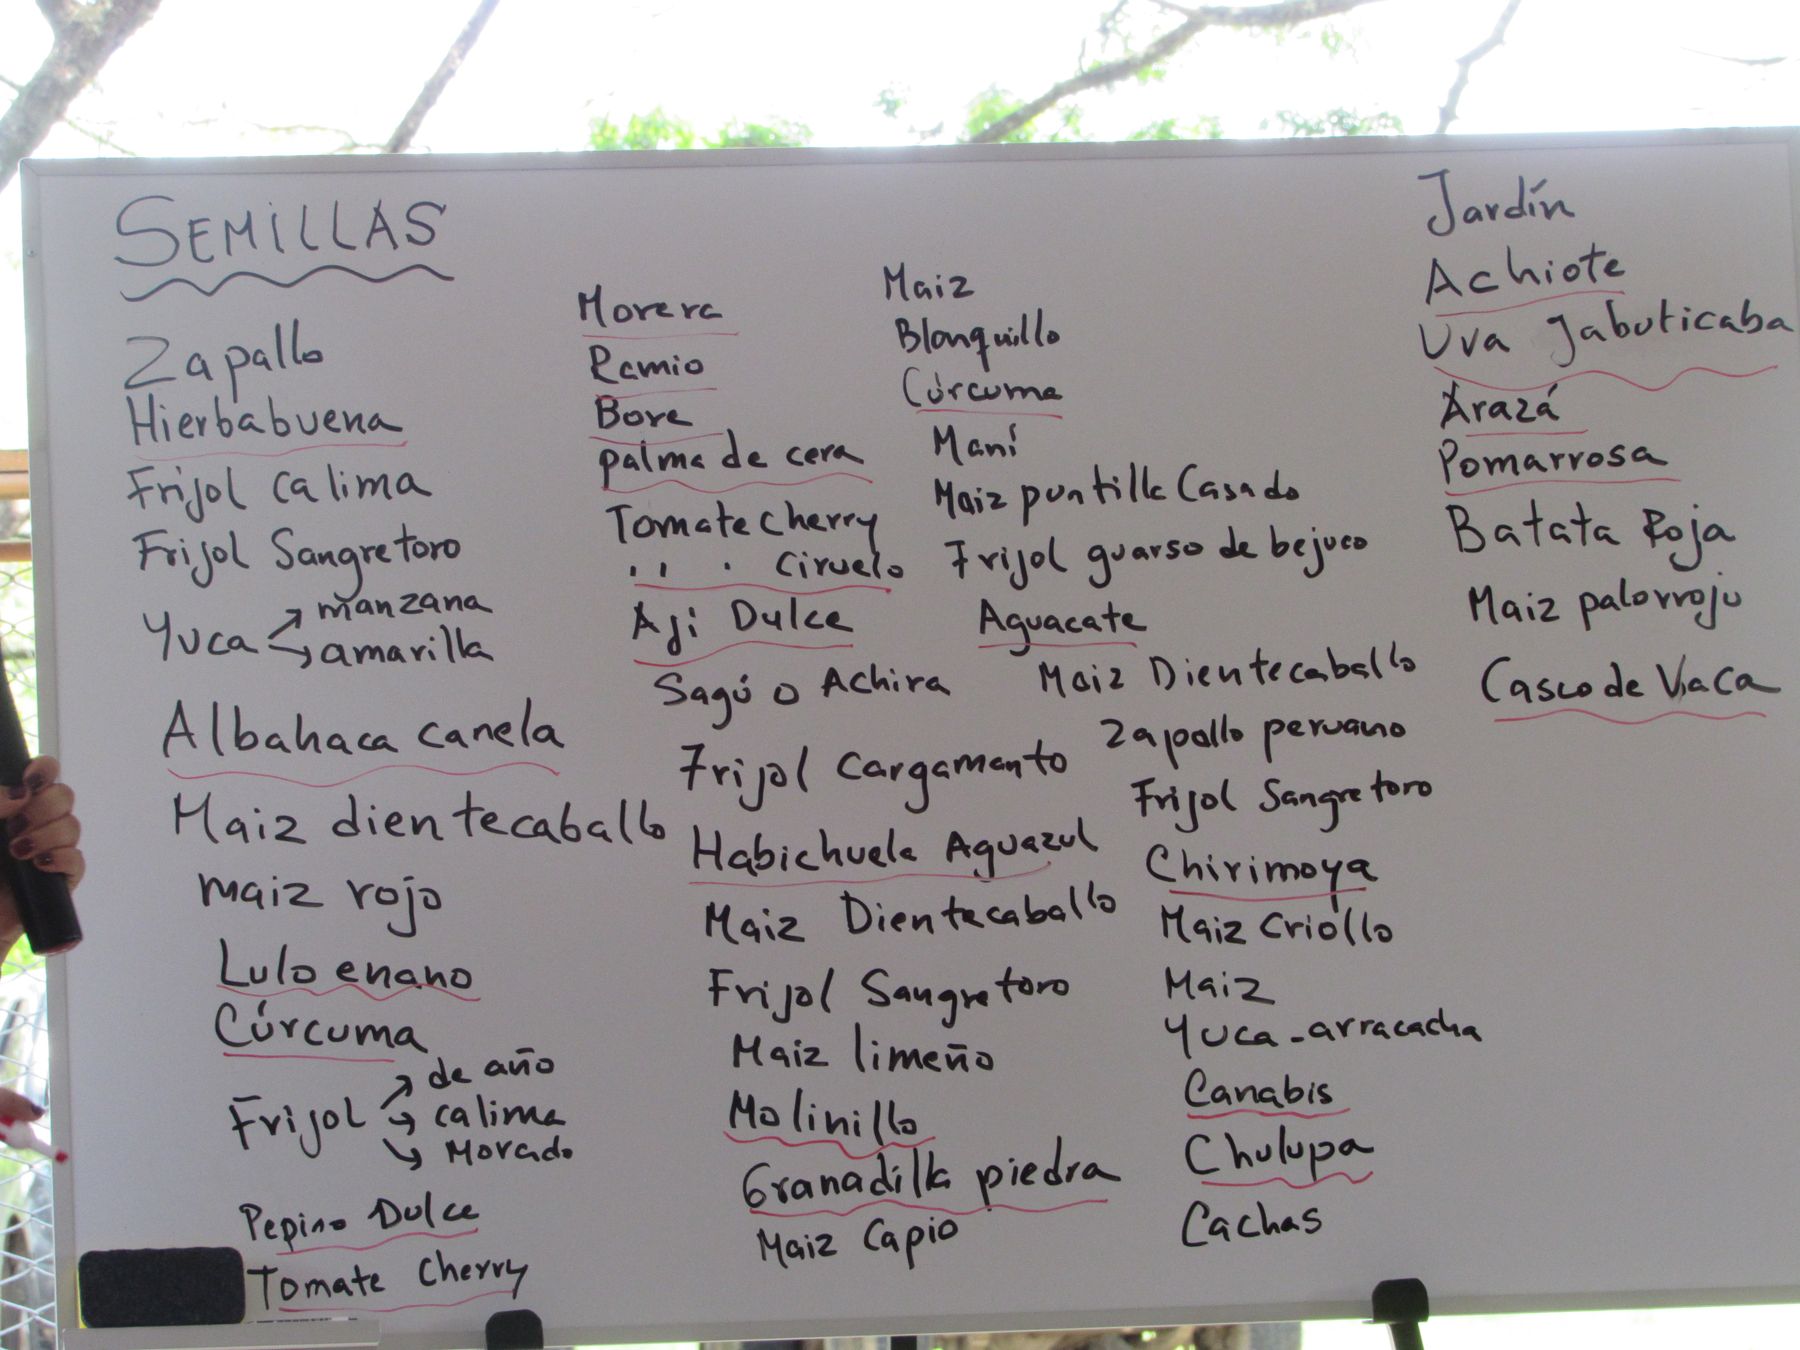 SEMILLAS
Zapallo
Hierbabuena
Frijol calima
Frijol Sangretoro
Yuca → manzana
→ amarilla
Albahaca canela
Maiz dientecaballo
maiz rojo
Lulo enano
Cúrcuma
Frijol → de año
→ calima
→ Morado
Pepino Dulce
Tomate Cherry
Morera
Ramio
Bore
palma de cera
Tomate cherry
" " ciruelo
Aji Dulce
Sagú o Achira
Frijol Cargamanto
Habichuela Aguazul
Maiz Dientecaballo
Frijol Sangretoro
Maiz limeño
Molinillo
Granadilla piedra
Maiz Capio
Maiz
Blanquillo
Cúrcuma
Maní
Maiz puntilla Casado
Frijol guarso de bejuco
Aguacate
Maiz Dientecaballo
Zapallo peruano
Frijol Sangretoro
Chirimoya
Maiz Criollo
Maiz
Yuca - arracacha
Canabis
Chulupa
Cachas
Jardín
Achiote
Uva Jabuticaba
Arazá
Pomarrosa
Batata Roja
Maiz palorrojo
Casco de Vaca